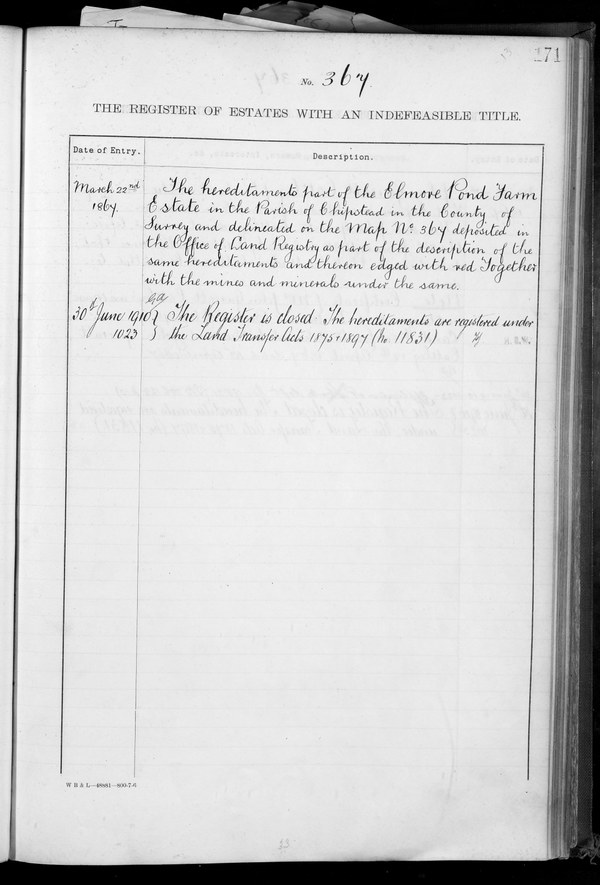 171
No. 367
THE REGISTER OF ESTATES WITH AN INDEFEASIBLE TITLE.
Date of Entry.
Description.
March 22nd
1867.
The hereditaments part of the Elmore Pond Farm
Estate in the Parish of Chipstead in the County of
Surrey and delineated on the Map No. 367 deposited in
the Office of Land Registry as part of the description of the
same hereditaments and thereon edged with red Together
with the mines and minerals under the same.
30th June 1910
1023
The Register is closed The hereditaments are registered under
the Land Transfer Acts 1875 & 1897 (No. 11831)
W B & L—46881—800-7-6